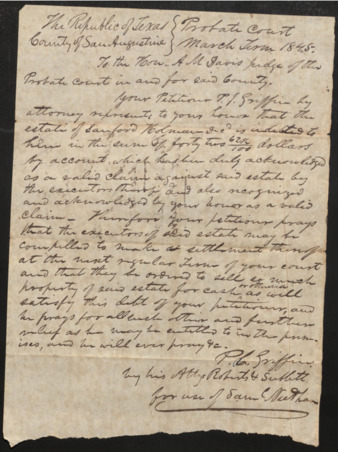 The Republic of Texas { Probate Court
County of San Augustine { March Term 1845.
To the Hon. A M Davis judge of the
Probate court in and for said County.
Your Petitioner P. C. Griffin by
attorney represents to your honor that the
estate of Sanford Holman Dcd is indebted to
him in the sum of forty two /100 dollars
by account, which has been duly acknowledged
as a valid claim against said estate by
the executors thereof, and also recognized
and acknowledged by your honor as a valid
claim – Wherefore your petitioner prays
that the executors of said estate may be
compelled to make a settlement thereof
at the next regular Term of your court
and that they be ordered to sell so much
property of said estate for cash or otherwise as will
satisfy this debt of your petitioner, and
he prays for all such other and further
relief as he may be entitled to in the prem-
ises, and he will ever pray &c.
P. C. Griffin
by his Atty Roberts &
for use of Saml